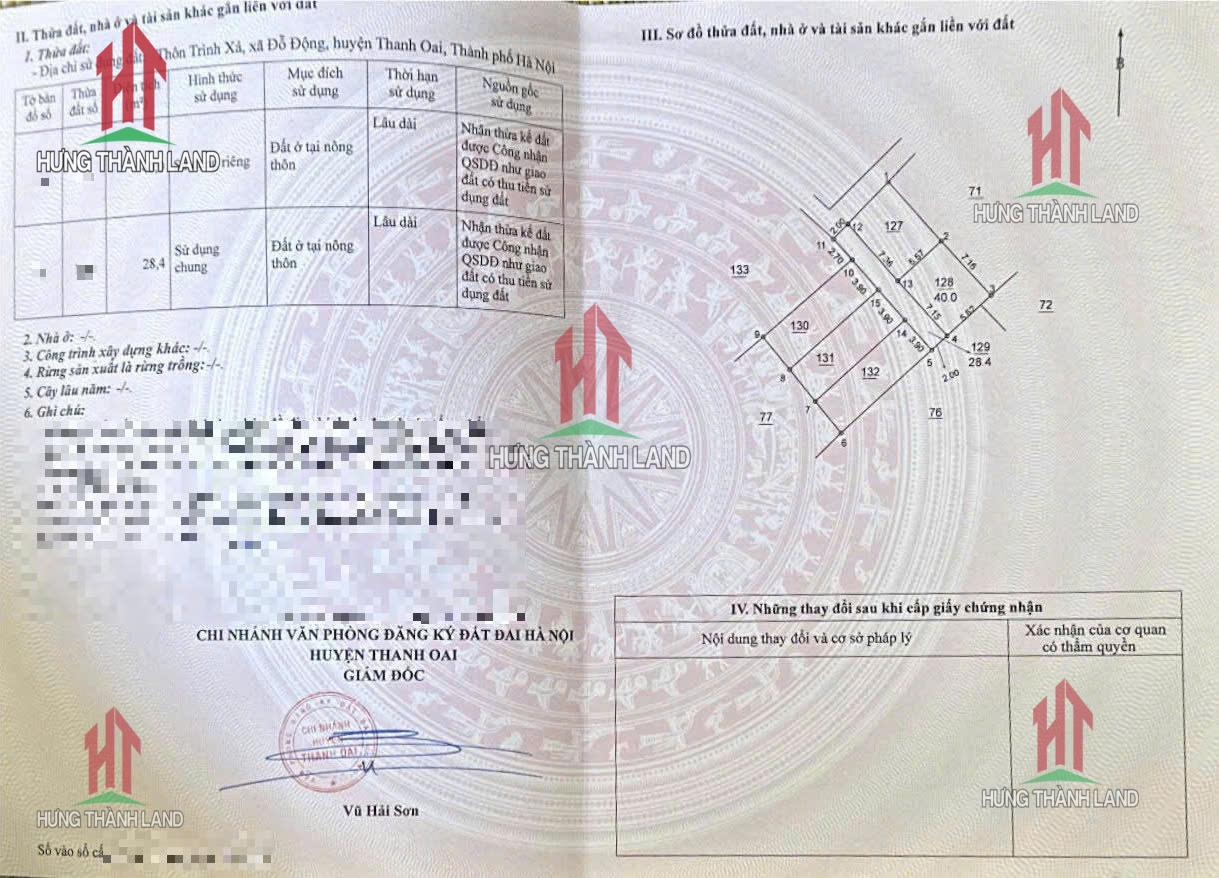 II. Thửa đất, nhà ở và tài sản khác gắn liền với đất
1. Thửa đất:
- Địa chỉ sử dụng đất: Thôn Trình Xá, xã Đỗ Động, huyện Thanh Oai, Thành phố Hà Nội
Tờ bản đồ số
Thửa đất số
Diện tích (m²)
Hình thức sử dụng
Mục đích sử dụng
Thời hạn sử dụng
Nguồn gốc sử dụng
riêng
Đất ở tại nông
thôn
Lâu dài
Nhận thừa kế đất
được Công nhận
QSDĐ như giao
đất có thu tiền sử
dụng đất
28,4
Sử dụng
chung
Đất ở tại nông
thôn
Lâu dài
Nhận thừa kế đất
được Công nhận
QSDĐ như giao
đất có thu tiền sử
dụng đất
2. Nhà ở: -/-.
3. Công trình xây dựng khác: -/-.
4. Rừng sản xuất là rừng trồng: -/-.
5. Cây lâu năm: -/-.
6. Ghi chú:
CHI NHÁNH VĂN PHÒNG ĐĂNG KÝ ĐẤT ĐAI HÀ NỘI
HUYỆN THANH OAI
GIÁM ĐỐC
CHI NHÁNH
HUYỆN
THANH OAI
Vũ Hải Sơn
Số vào sổ cấ
III. Sơ đồ thửa đất, nhà ở và tài sản khác gắn liền với đất
B
1
71
127
2.00
12
2
11
5.57
7.16
2.70
7.36
133
10
13
128
40.0
3
72
3.90
15
7.15
5.62
3.90
14
130
9
3.90
4
129
28.4
131
5
8
132
2.00
7
77
76
6
IV. Những thay đổi sau khi cấp giấy chứng nhận
Nội dung thay đổi và cơ sở pháp lý
Xác nhận của cơ quan
có thẩm quyền
HƯNG THÀNH LAND
HƯNG THÀNH LAND
HƯNG THÀNH LAND
HƯNG THÀNH LAND
HƯNG THÀNH LAND